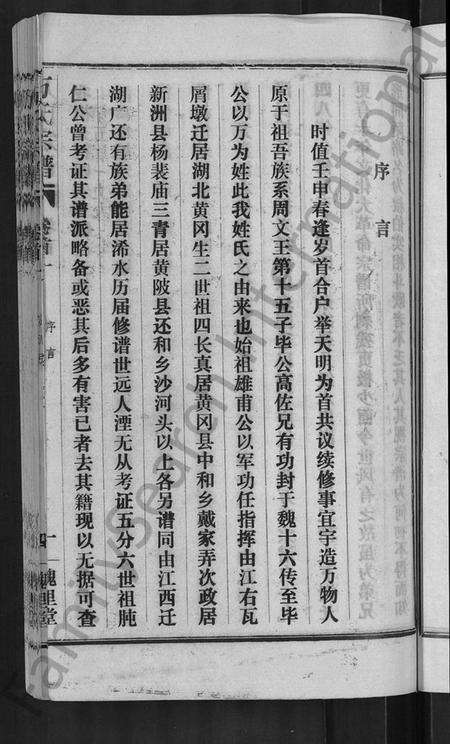 序言
时值壬申春逢岁首合户举天明为首共议续修事宜宇造万物人
原于祖吾族系周文王第十五子毕公高佐兄有功封于魏十六传至毕
公以万为姓此我姓氏之由来也始祖雄甫公以军功任指挥由江右瓦
屑墩迁居湖北黄冈生二世祖四长真居黄冈县中和乡戴家弄次政居
新洲县杨裴庙三青居黄陂县还和乡沙河头以上各另谱同由江西迁
湖广还有族弟能居浠水历届修谱世远人湮无从考证五分六世祖肫
仁公曾考证其谱派略备或恶其后多有害已者去其籍现以无据可查
氏宗谱
卷首一
序言
四一
槐里堂
FamilySearch International